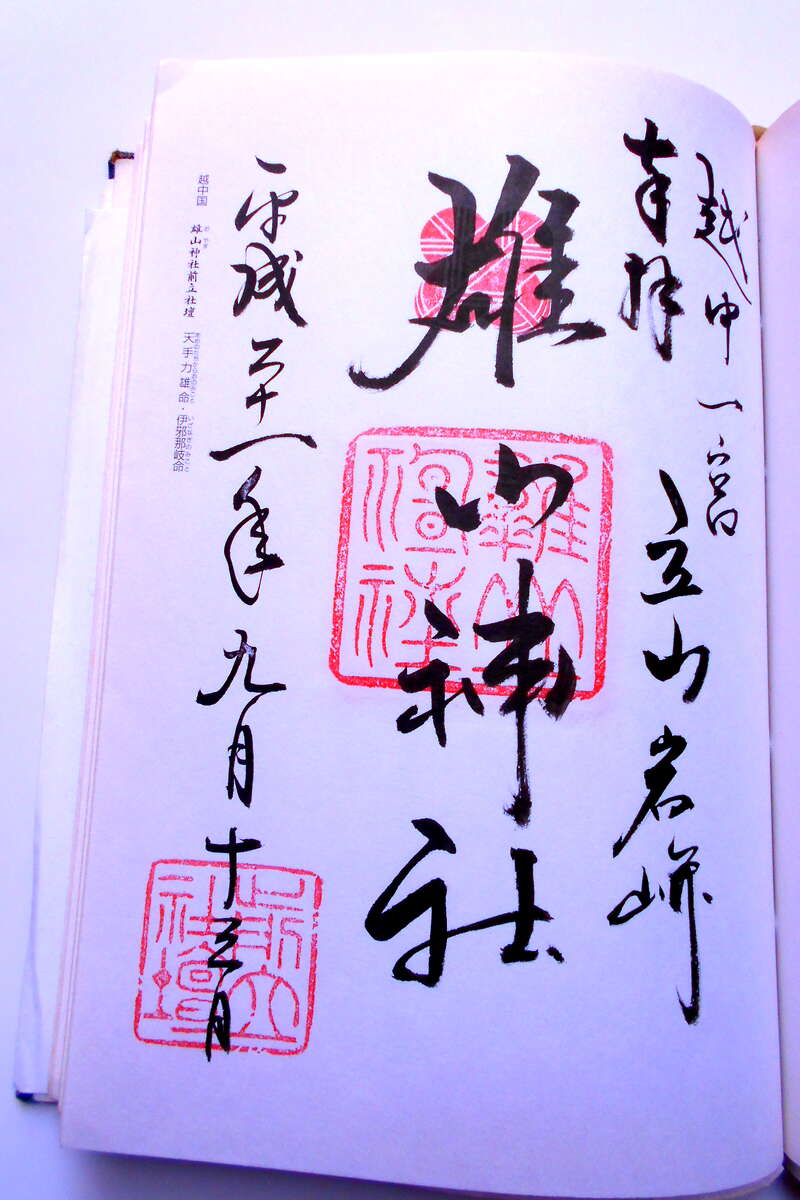 越中一宮
奉拝 立山岩峅
雄山神社
雄山
神社
平成二十一年九月十三日
前立
社壇
越中国 雄山神社前立社壇 天手力雄命・伊邪那岐命